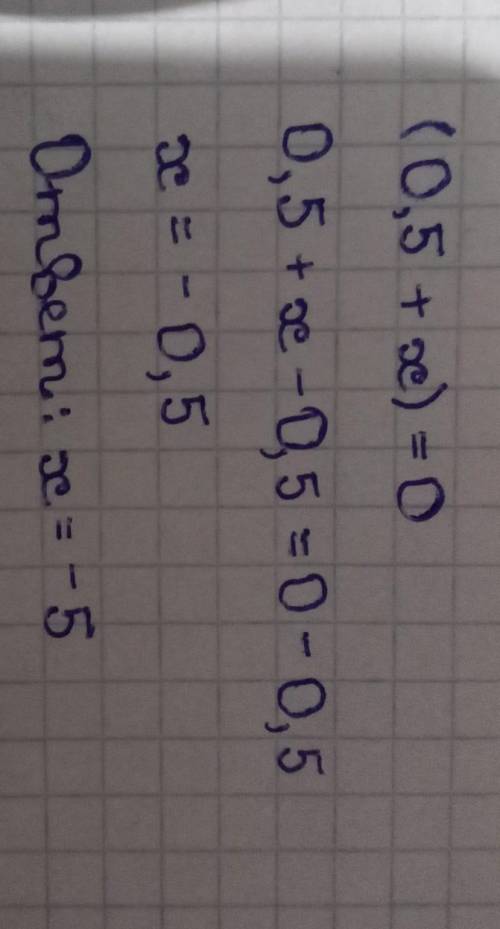 (0,5 + x) = 0
0,5 + x - 0,5 = 0 - 0,5
x = - 0,5
Ответ: x = - 5